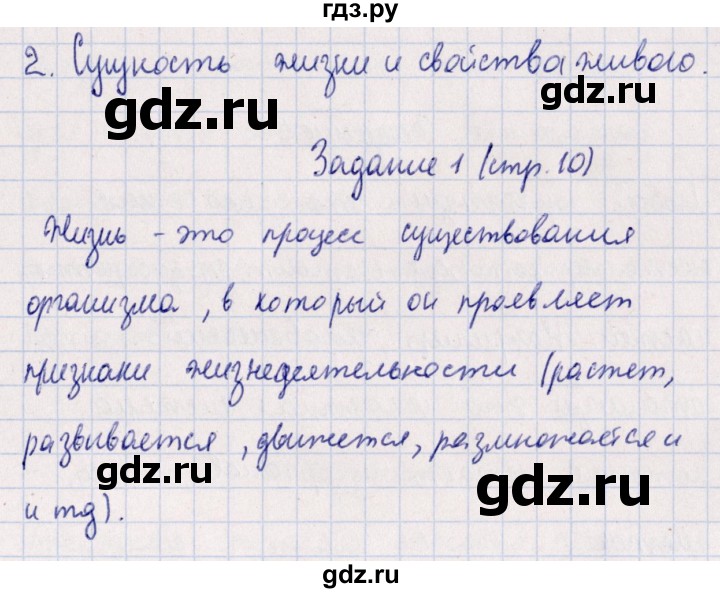 гдз.ру
2. Сущность жизни и свойства живого.
gdz.ru
gdz.ru
Задание 1 (стр. 10)
Жизнь - это процесс существования
организма, в который он проявляет
gdz.ru
gdz.ru
признаки жизнедеятельности (растет,
развивается, движется, размножается и
gdz.ru
gdz.ru
и тд).
gdz.ru